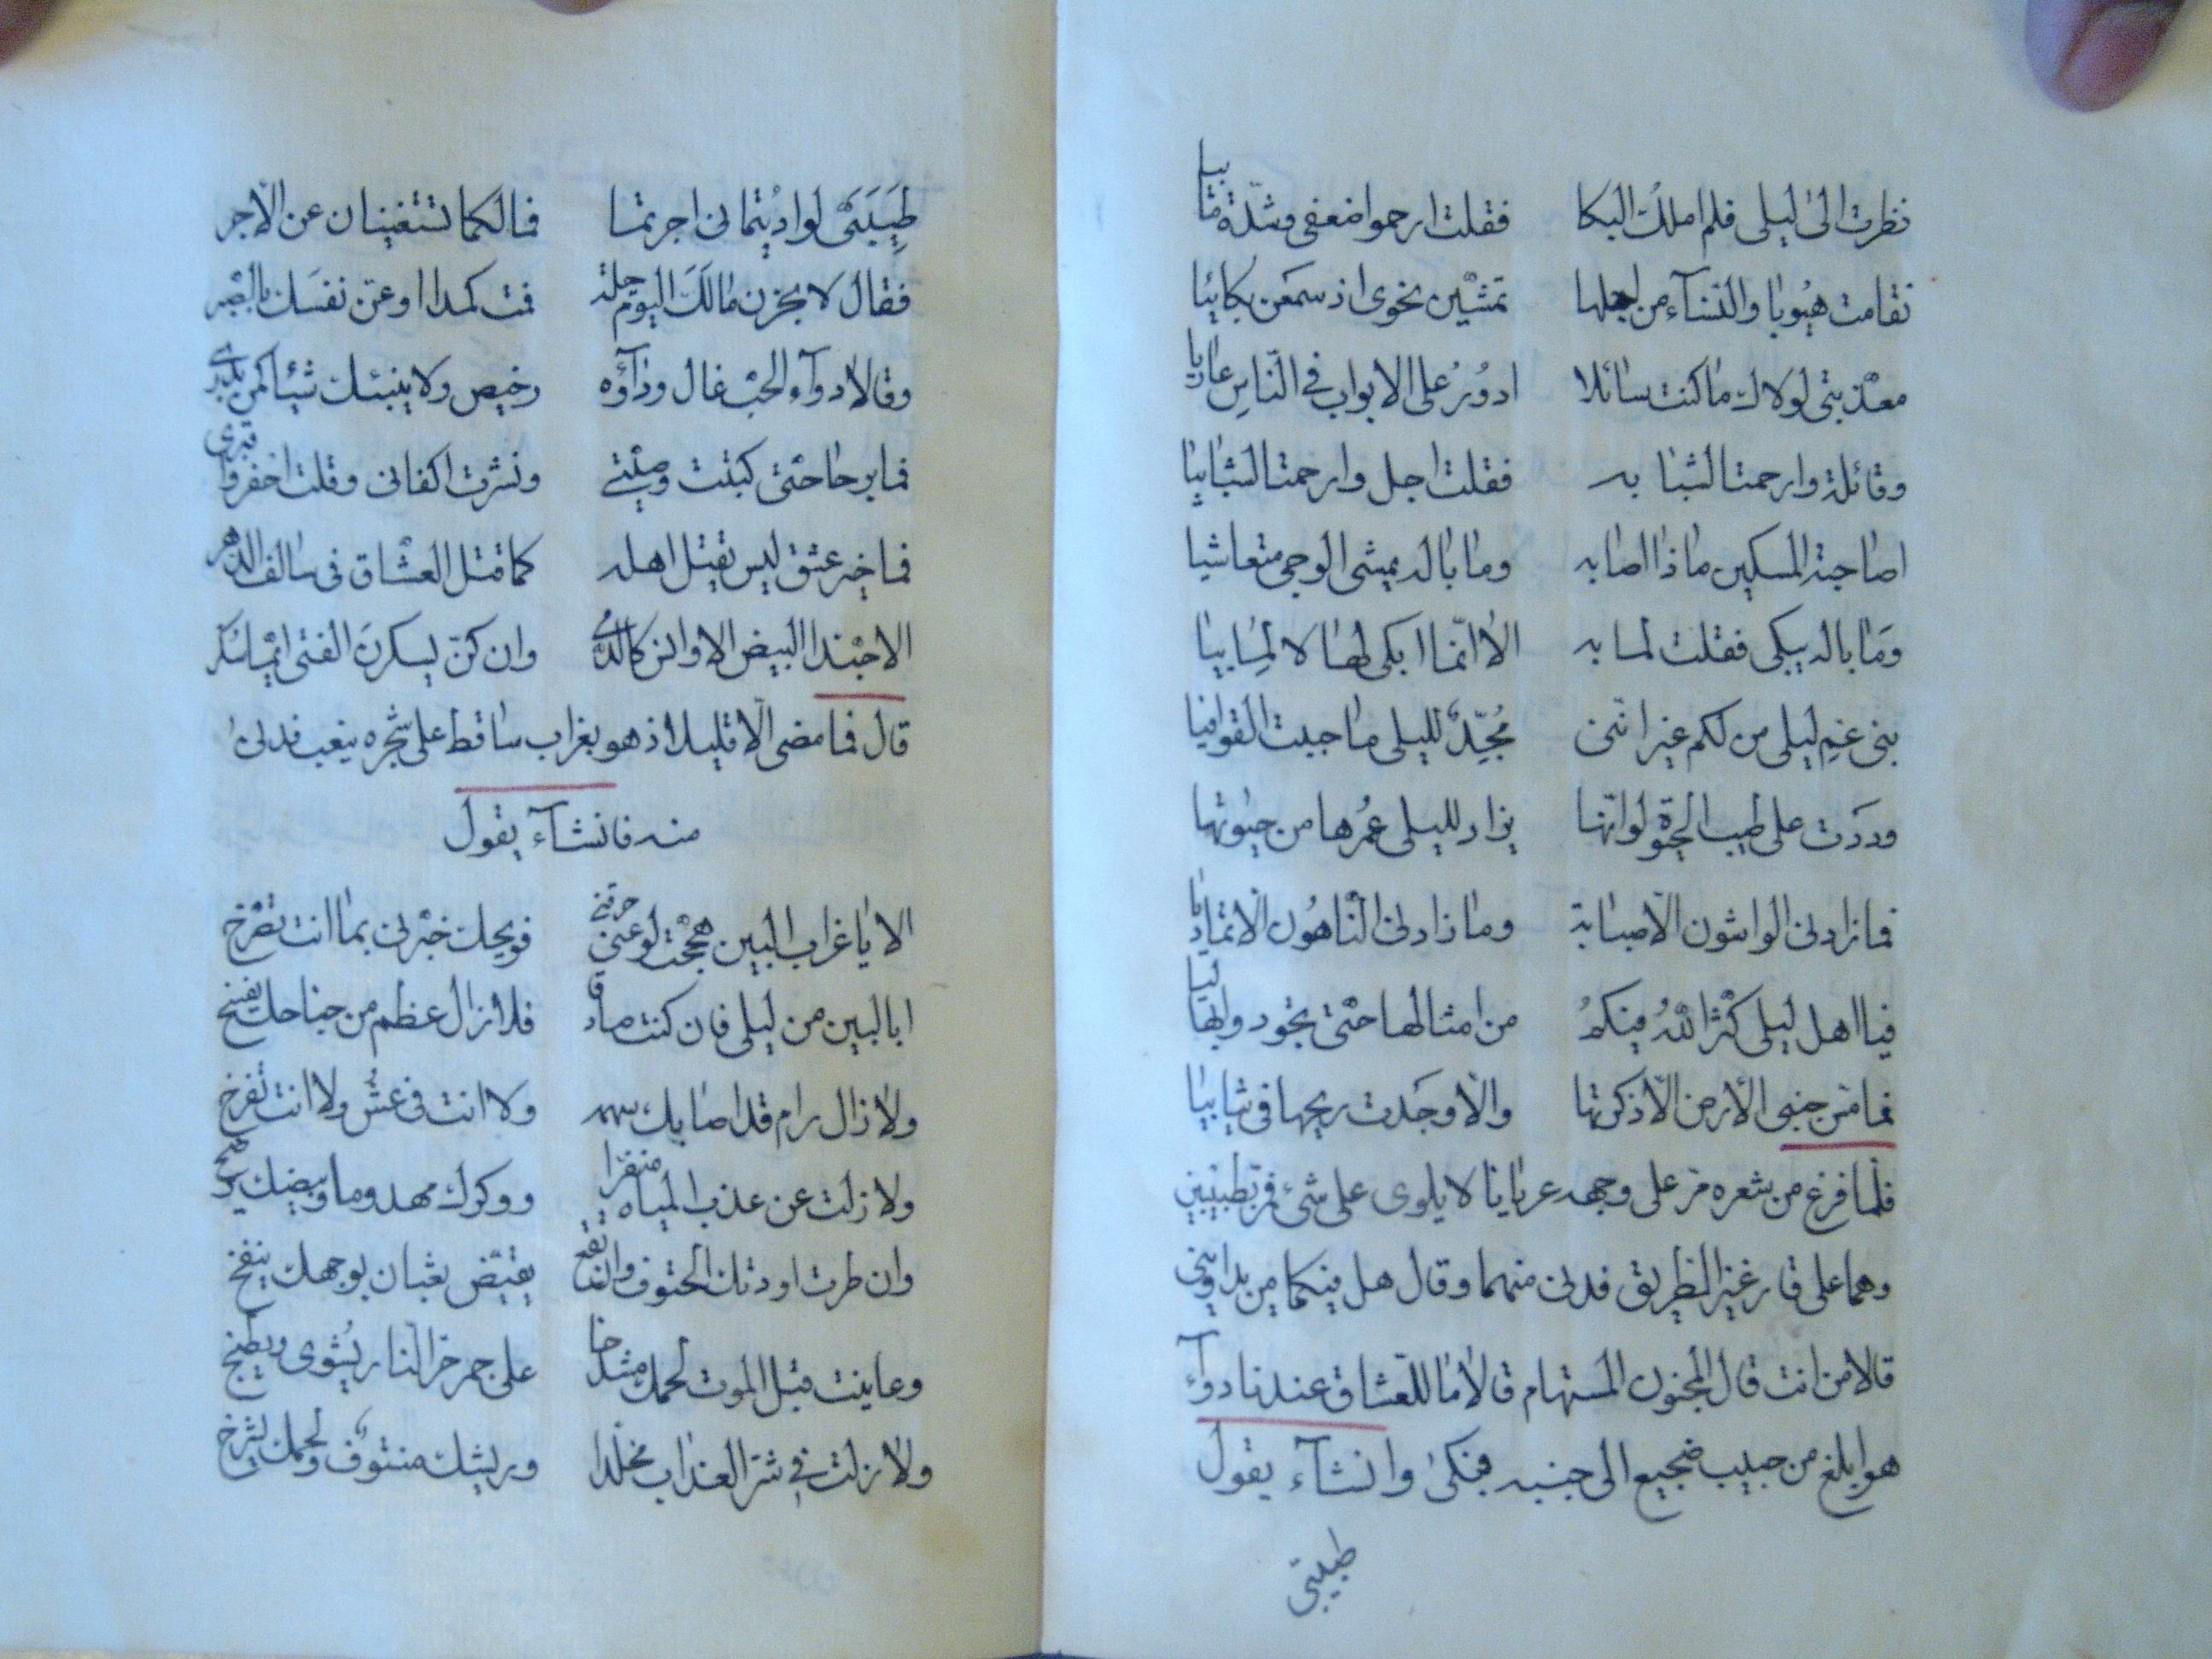 نظرت الى ليلى فلم املك البكا فقلت ارحموا ضعفى وشدّة مابيا
فقامت هبوبا والنسآء من اجلها تمشّين نحوى اذ سمعن بكائيا
معذّبتى لولاك ما كنت سائلا ادور على الابواب فى الناس عاريا
وقائلة وارحمتا لشبابه فقلت اجل وارحمتا لشبابيا
اصاحبة المسكين ماذا اصابه وما باله يمشى الوجى متعاشيا
وما باله يبكى فقلت لما به الا انّما ابكى لها لا لمابيا
بنى عم ليلى من لكم غير انّنى مجدّ لليلى ما حييت القوافيا
وددت على طيب الحيوة لوانّها يزاد لليلى عمرها من حيوتيا
فما زادنى الواشون الّا صبابة وما زادنى النّاهون الّا تماديا
فيا اهل ليلى كثّر الله فيكم من امثالها حتّى تجود والها ليا
فما مسّ جنبى الأرض الّا ذكرتها والّا وجدت ريحها فى ثيابيا
فلمّا فرغ من شعره مرّ على وجهه عريانا لا يلوى على شىء فمرّ بطبيبين
وهما على قارعة الطريق فدنى منهما وقال هل فيكما من يداوينى
قالا من انت قال المجنون المستهام قالا ما للعشاق عندنا دوآء
هو ابلغ من حبيب ضجيع الى جنبه فبكى وانشآء يقول
طبيبىّ
طبيبىّ لو اديتمانى اجرتما فمالكما تستغنيان عن الاجر
فقال لا بحزن مالك اليوم حيلة فمت كمدا او عزّ نفسك بالصّبر
وقالا دوآء الحب غال ودآؤه رخيص ولا ينبئك شيئا كمن يدرى
فما برحا حتّى كتبت وصيّتى ونشرت اكفانى وقلت احفروا قبرى
فما خير عشق ليس يقتل اهله كما قتل العشّاق فى سالف الدهر
الا حبّذا البيض الاوانس كالدمى وان كنّ يسكرن الفتى ايما سكر
قال فما مضى الّا قليلا اذ هو بغراب ساقط على شجره ينعب فدنى
منه فانشآء يقول
الا يا غراب البين هيّجت لوعتى فويحك خبّرنى بما انت تصرخ
ابالبين من ليلى فان كنت صادقا فلا زال عظم من جناحك يفسخ
ولا زال رام قد اصابك سهمه ولا انت فى عشّ ولا انت تفرخ
ولا زلت عن عذب المياه منفرا ووكرك مهدوما وبيضك
وان طرت اودتك الحتوف وان تقع تقيّض ثعبان بوجهك ينفخ
وعاينت قبل الموت لحمك مشدخا على جمر حر النار يشوى ويطبخ
ولا زلت فى شرّ العذاب مخلّدا وريشك منتوف ولحمك يشرخ